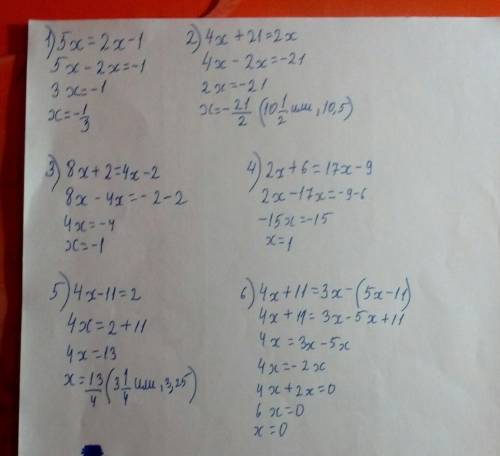 1) 5x=2x-1
5x-2x=-1
3x=-1
x=-1/3
2) 4x+21=2x
4x-2x=-21
2x=-21
x=-21/2 (10 1/2 или, 10,5)
3) 8x+2=4x-2
8x-4x=-2-2
4x=-4
x=-1
4) 2x+6=17x-9
2x-17x=-9-6
-15x=-15
x=1
5) 4x-11=2
4x=2+11
4x=13
x=13/4 (3 1/4 или, 3,25)
6) 4x+11=3x-(5x-11)
4x+11=3x-5x+11
4x=3x-5x
4x=-2x
4x+2x=0
6x=0
x=0